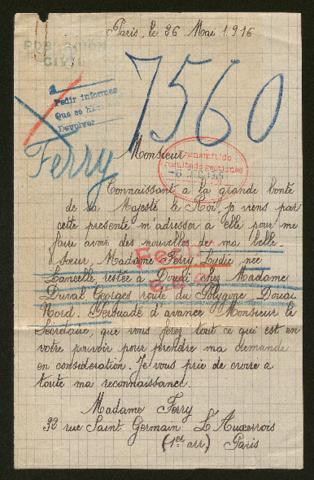 Paris, le 26 Mai 1916
POBLACION
CIVIL
Pedir informes
Que se han
Devolver
7560
Ferry
Monsieur
Connaissant a la grande bonté
de sa Majesté le Roi, je viens par
cette presente m'adresser a Elle pour me
faire avoir des nouvelles de ma belle
soeur, Madame Ferry Lydie née
Lancelle restée a Douai chez Madame
Duval Georges route du Polygone Douai
Nord. Persuadé d'avance Monsieur le
Secrétaire, que vous ferez tout ce qui est en
votre pouvoir pour prendre ma demande
en consideration. Je vous prie de croire a
toute ma reconnaissance.
Madame Ferry
32 rue Saint Germain L'Auxerrois
(1er arr) Paris